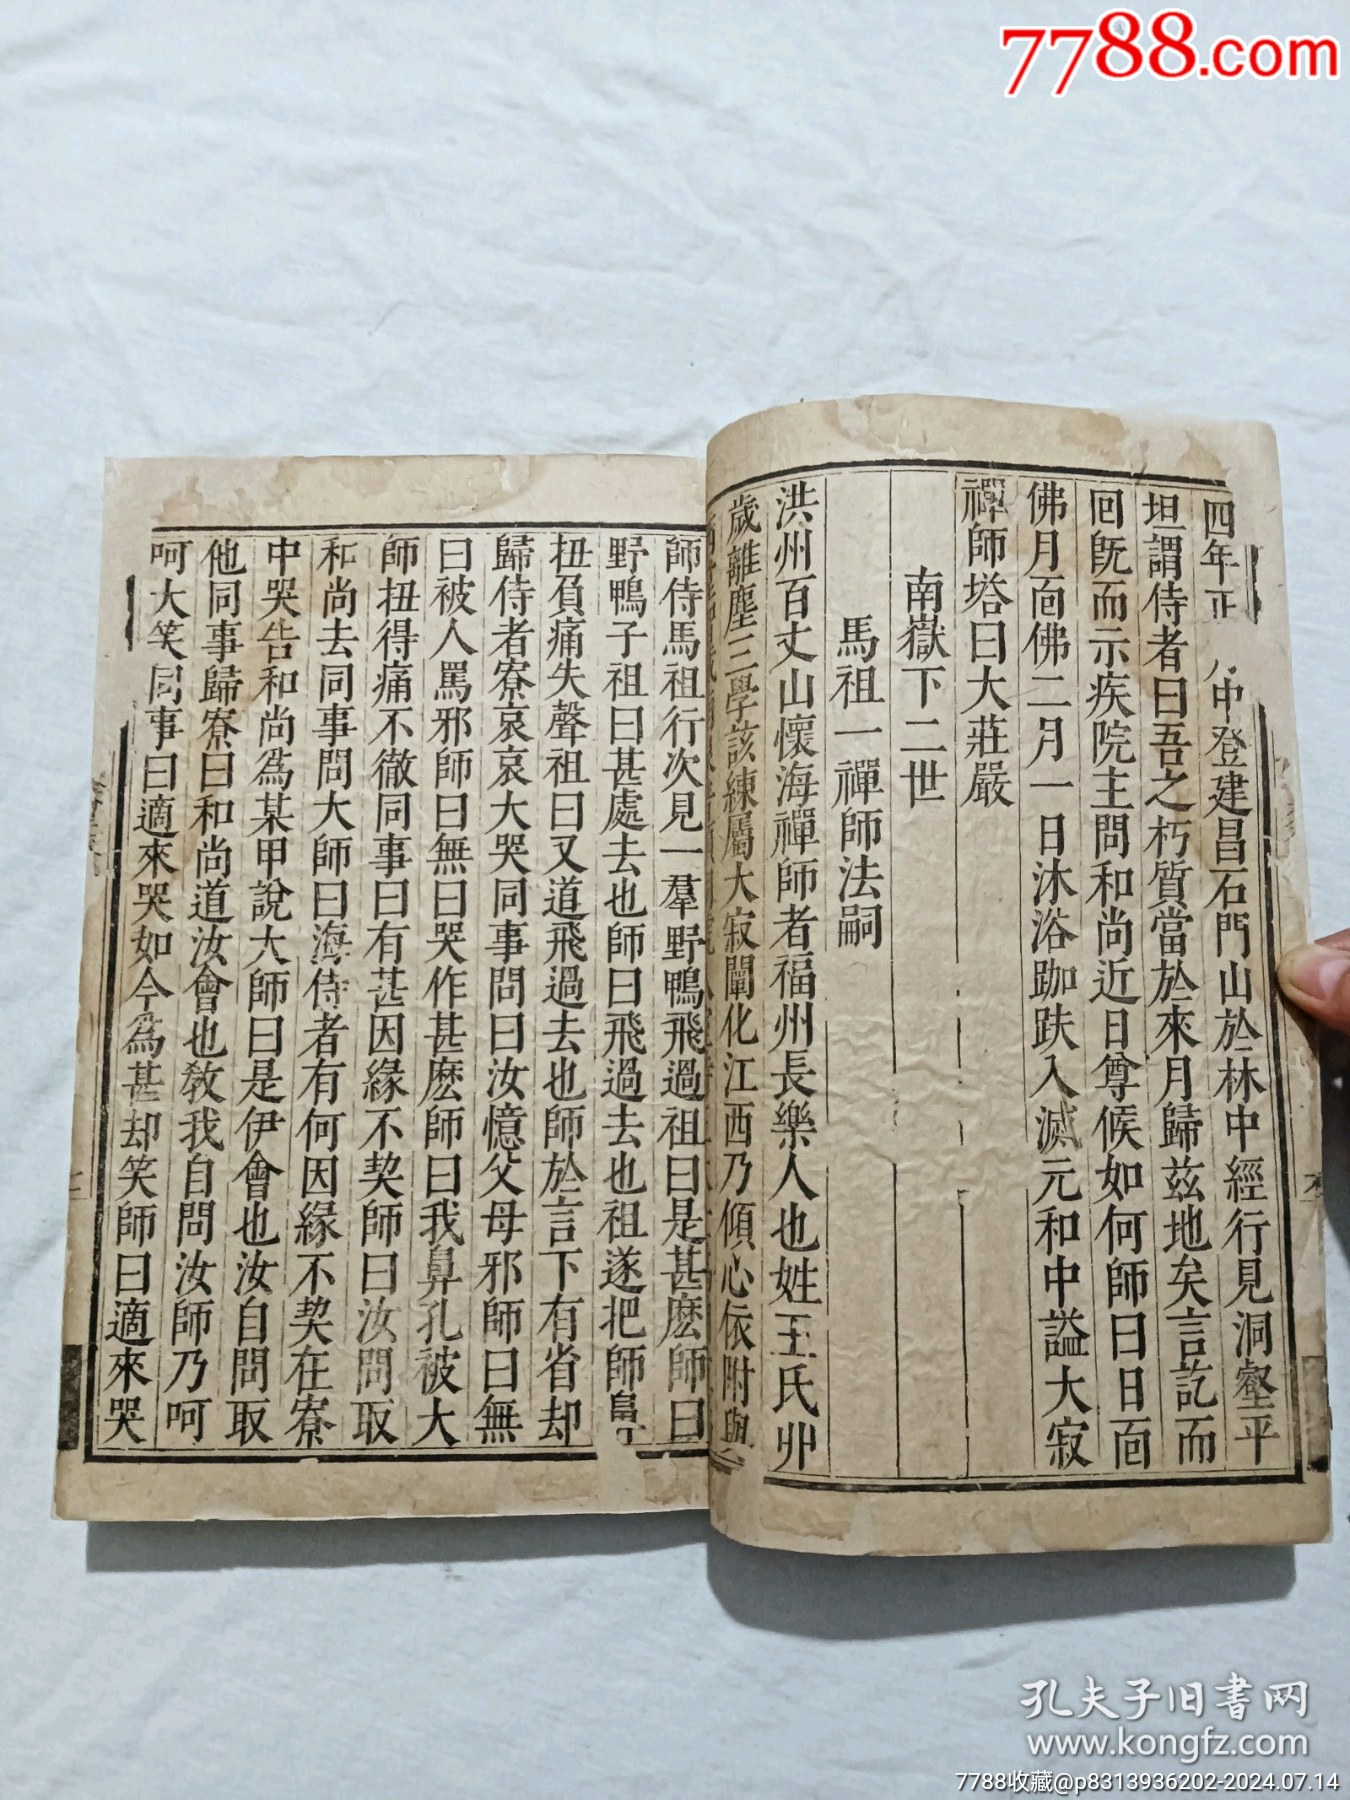 7788.com
四年正 中登建昌石門山於林中經行見洞壑平
坦謂侍者曰吾之朽質當於來月歸茲地矣言訖而
回旣而示疾院主問和尚近日尊候如何師曰日面
佛月面佛二月一日沐浴跏趺入滅元和中謚大寂
禪師塔曰大莊嚴
南嶽下二世
馬祖一禪師法嗣
洪州百丈山懷海禪師者福州長樂人也姓王氏丱
歲離塵三學該練屬大寂闡化江西乃傾心依附與
師侍馬祖行次見一羣野鴨飛過祖曰是甚麽師曰
野鴨子祖曰甚處去也師曰飛過去也祖遂把師鼻
扭負痛失聲祖曰又道飛過去也師於言下有省却
歸侍者寮哀哀大哭同事問曰汝憶父母邪師曰無
曰被人罵邪師曰無曰哭作甚麽師曰我鼻孔被大
師扭得痛不徹同事曰有甚因緣不契師曰汝問取
和尚去同事問大師曰海侍者有何因緣不契在寮
中哭告和尚爲某甲說大師曰是伊會也汝自問取
他同事歸寮曰和尚道汝會也敎我自問汝師乃呵
呵大笑同事曰適來哭如今爲甚却笑師曰適來哭
孔夫子旧書网
www.kongfz.com
7788收藏@p8313936202-2024.07.14